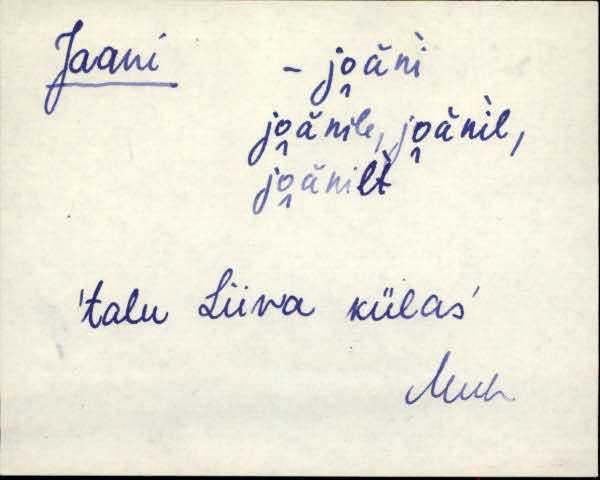 Jaani – jo̭äǹi
jo̭änile, jo̭äǹil,
jo̭äniĺt
'talu Liiva külas'
Muh